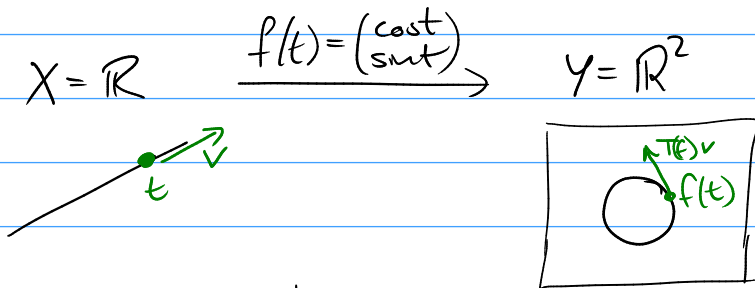 X = ℝ
f(t) = (cost sint)
Y = ℝ²
t
v
T(f)v
f(t)